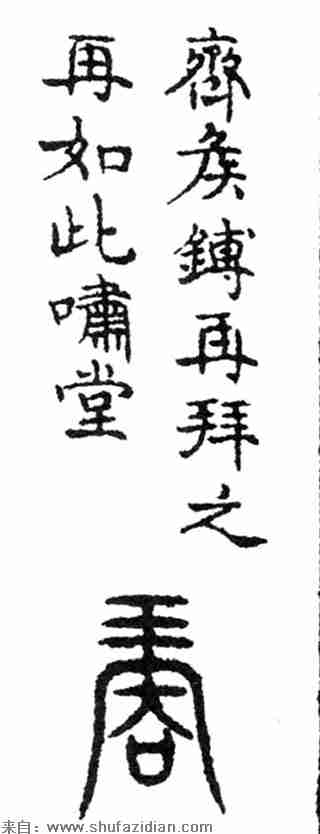 齊矦鎛再拜之
再如此嘯堂
来自：www.shufazidian.com